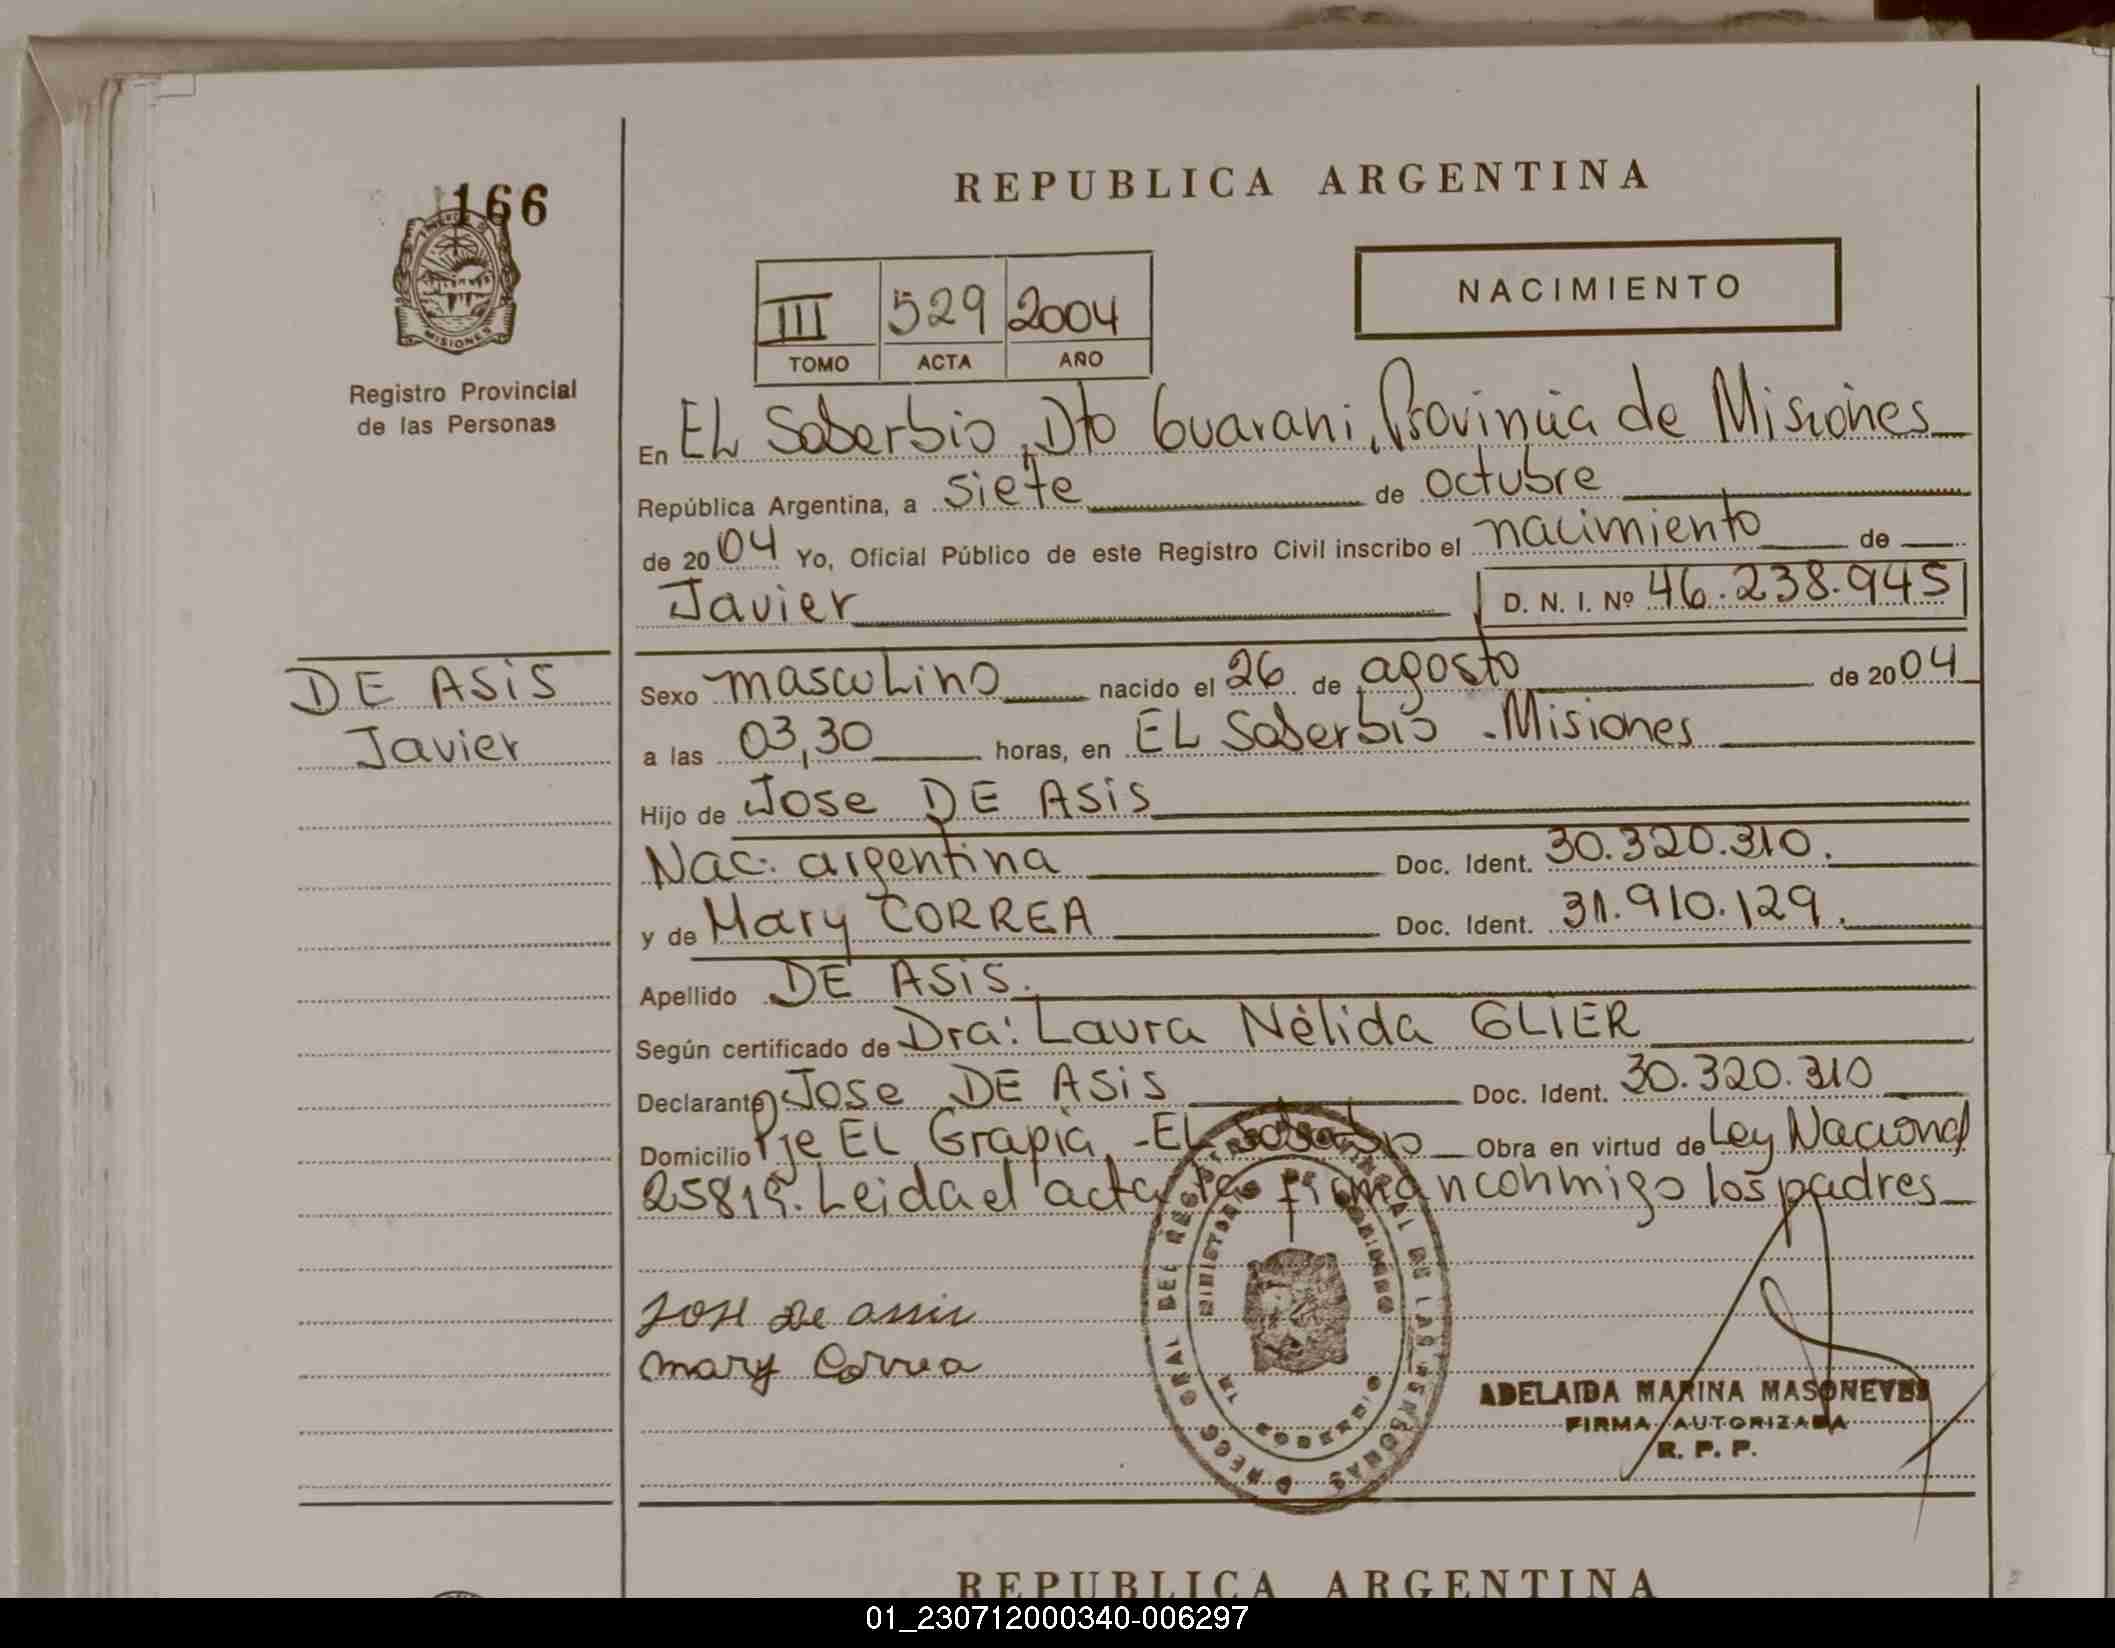 166
MISIONES
Registro Provincial
de las Personas
DE ASiS
Javier
REPUBLICA ARGENTINA
III 529 2004
TOMO ACTA AÑO
NACIMIENTO
En EL Soberbio, Dto Guarani, Provincia de Misiones
República Argentina, a siete de octubre
de 2004 Yo, Oficial Público de este Registro Civil inscribo el nacimiento de
Javier D. N. I. Nº 46.238.945
Sexo masculino nacido el 26 de agosto de 2004
a las 03,30 horas, en EL Soberbio - Misiones
Hijo de Jose DE ASiS
Nac: argentina Doc. Ident. 30.320.310.
y de Mary CORREA Doc. Ident. 31.910.129.
Apellido DE ASiS.
Según certificado de Dra: Laura Nélida GLIER
Declarante Jose DE ASiS Doc. Ident. 30.320.310
Domicilio Pje EL Grapia - EL Soberbio Obra en virtud de Ley Nacional
25819. Leida el acta la firman conmigo los padres
Jose De assis
mary Correa
ADELAIDA MARINA MASONEVES
FIRMA AUTORIZADA
R. P. P.
REPUBLICA ARGENTINA
01_230712000340-006297